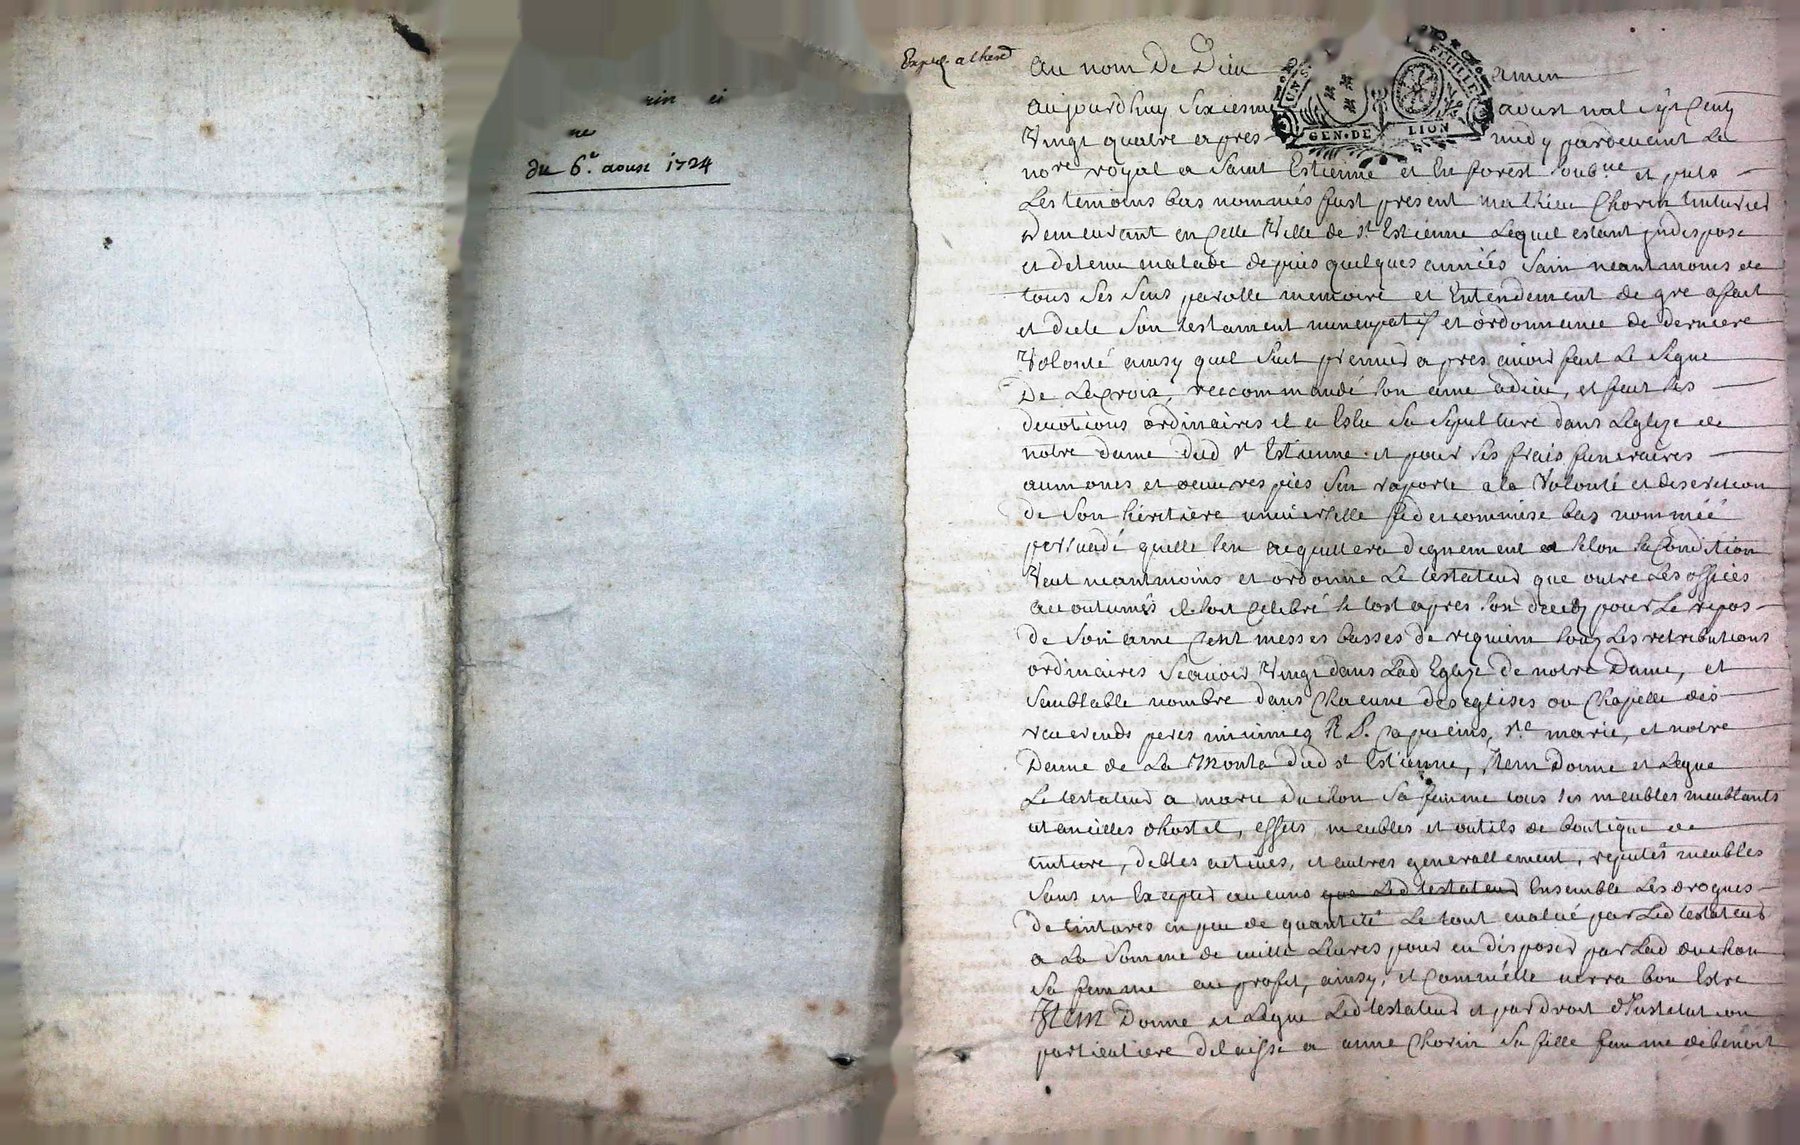 rin ei
ne
du 6.e aoust 1724
Exped a lhered
Au nom De Dieu amen
UN S. FEUILLE
GEN. DE LION
Aujourdhuy sixiesme aoust mil sept cents
Vingt quatre apres midy pardevant Le
nore royal a Saint Estienne et En forest soubne et puis
Les temoins bas nommés fust present mathieu Chorin tinturier
demeurant en Cette Ville de st Estienne Lequel estant jndispose
et detenu malade depuis quelques années Sain neantmoins de
tous Ses sens parolle memoire et Entendement de gre a fait
et dicte Son testament nuncupatif et ordonnance de derniere
Volonté ainsy quil suit premier apres avoir fait Le signe
De La croix, reccommandé son ame a dieu, et fait ses
devotions ordinaires il a Eslu Sa Sepulture dans Leglize de
notre dame dud st Estienne et pour ses frais funeraires
aumones et oeuvres pies sen raporte a la Volonté et discretion
de Son heritiere universelle fideicommise bas nommeé
persuadé quelle sen acquittera dignement et selon sa Condition
Veut neantmoins et ordonne Le testateur que outre Les offices
accoutumés il soit Celebré sitost apres son deceds pour Le repos
de Son ame Cent messes basses de requiem sous Les retributions
ordinaires Scavoir Vingt dans Lad Eglize de notre Dame, et
Semblable nombre dans Chacune des eglises ou Chapelle des
reverends peres minimes R P. Capucins, ste marie, et notre
Dame de La Monta dud st Estienne, Item Donne et Legue
Le testateur a marie Duchon Sa femme tous ses meubles meublants
utancilles dhostel, effets, meubles et outils de boutique de
tinture, debtes actives, et autres generallement, reputés meubles
Sans en Excepter aucuns que Led testateur Ensemble Les drogues
de tintures en peu de quantité Le tout evalué par Led testateur
a La Somme de mille Livres pour en disposer par Lad duchon
Sa femme au profit, ainsy, et Comme elle verra bon Estre
Item Donne et Legue Led testateur et par droit d'Institution
particuliere delaisse a anne Chorin Sa fille femme de benoit